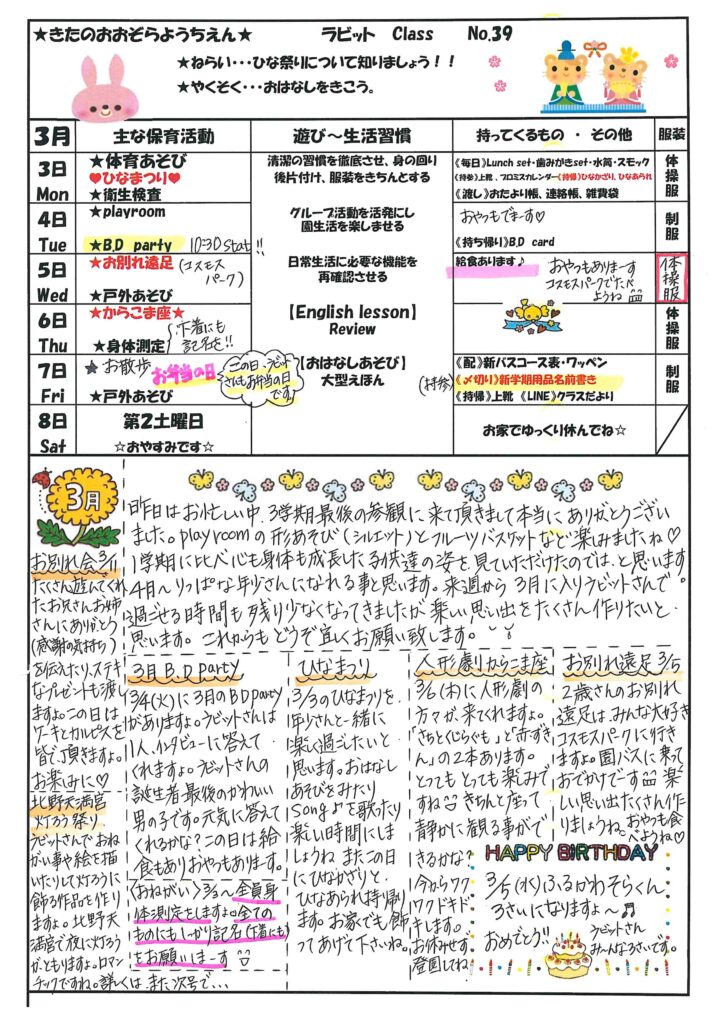 ★きたのおおぞらようちえん★ ラビット Class No.39
★ねらい・・・ひな祭りについて知りましょう！！
★やくそく・・・おはなしをきこう。
3月 主な保育活動 遊び～生活習慣 持ってくるもの ・ その他 服装
3日 Mon
★体育あそび
♥ひなまつり♥
★衛生検査
清潔の習慣を徹底させ、身の回り
後片付け、服装をきちんとする
《毎日》Lunch set・歯みがきset・水筒・スモック
《持参》上靴、プロミスカレンダー《持帰》ひなかざり、ひなあられ
《渡し》おたより帳、連絡帳、雑費袋
体操服
4日 Tue
★playroom
★B.D party 10:30 Stat!!
グループ活動を活発にし
園生活を楽しませる
おやつもでまーす♡
《持ち帰り》B.D card
制服
5日 Wed
★お別れ遠足(コスモスパーク)
★戸外あそび
日常生活に必要な機能を
再確認させる
給食あります♪
おやつもありまーす
コスモスパークでたべようね
体操服
6日 Thu
★からこま座★
★身体測定
下着にも記名を!!
【English lesson】
Review
体操服
7日 Fri
★お散歩 お弁当の日
この日、ラビットさんもお弁当の日です♪
★戸外あそび
【おはなしあそび】
大型えほん
(持参)
《配》新バスコース表・ワッペン
《〆切り》新学期用品名前書き
《持帰》上靴 《LINE》クラスだより
制服
8日 Sat
第2土曜日
☆おやすみです☆
お家でゆっくり休んでね☆
3月
昨日はお忙しい中、3学期最後の参観に来て頂きまして本当にありがとうござい
ました。playroomの形あそび(シルエット)とフルーツバスケットなど楽しみましたね♡
1学期に比べ心も身体も成長した子供達の姿を見ていただけたのでは、と思います
4月～りっぱな年少さんになれる事と思います。来週から3月に入りラビットさんで
過ごせる時間も残り少なくなってきましたが楽しい思い出をたくさん作りたいと
思います。これからもどうぞ宜しくお願い致します。
お別れ会3/11
たくさん遊んでくれ
たお兄さんお姉
さんにありがとう
(感謝の気持ち)
を伝えたり、ステキ
なプレゼントも渡し
ますよ。この日は
ケーキとカルピスを
皆で頂きますよ。
お楽しみに♡
北野天満宮
灯ろう祭り
ラビットさんでおね
がい事や絵を描
いたりして灯ろうに
飾る作品を作り
ますよ。北野天
満宮で夜に灯ろう
がともりますよ。ロマン
チックですね。詳しくはまた次号で…
3月B.D party
3/4(火)に3月のB.D party
がありますよ。ラビットさんは
1人、インタビューに答えて
くれますよ。ラビットさんの
誕生者最後のかわいい
男の子です。元気に答えて
くれるかな?この日は給
食もありおやつもあります。
《おねがい》3/3～全員身
体測定をしますよ。全ての
ものにしっかり記名(下着にも)
をお願いしまーす
ひなまつり
3/3のひなまつりを、
年少さんと一緒に
楽しく過ごしたいと
思います。おはなし
あそびをみたり
Song♪を歌ったり
楽しい時間にし
ましょうね またこの日
にひなかざりと、
ひなあられ持ち帰り
ます。お家でも飾
ってあげて下さいね。
人形劇からこま座
3/6(木)に人形劇の
方々が、来てくれますよ。
「さちとくじらぐも」と「赤ずき
ん」の2本あります。
とってもとっても楽しみで
すね きちんと座って
静かに観る事がで
きるかな?
今からワク
ワクドキド
キします。
お休みせず
登園してね
お別れ遠足3/5
2歳さんのお別れ
遠足は、みんな大好き
コスモスパークに行き
ますよ。園バスに乗って
おでかけです 楽
しい思い出たくさん作
りましょうね。おやつも食
べようね♡
HAPPY BIRTHDAY
3/5(水)ふるかわそらくん
3さいになりますよ～♬
おめでとう!!
ラビットさん
み～んな3さいです。